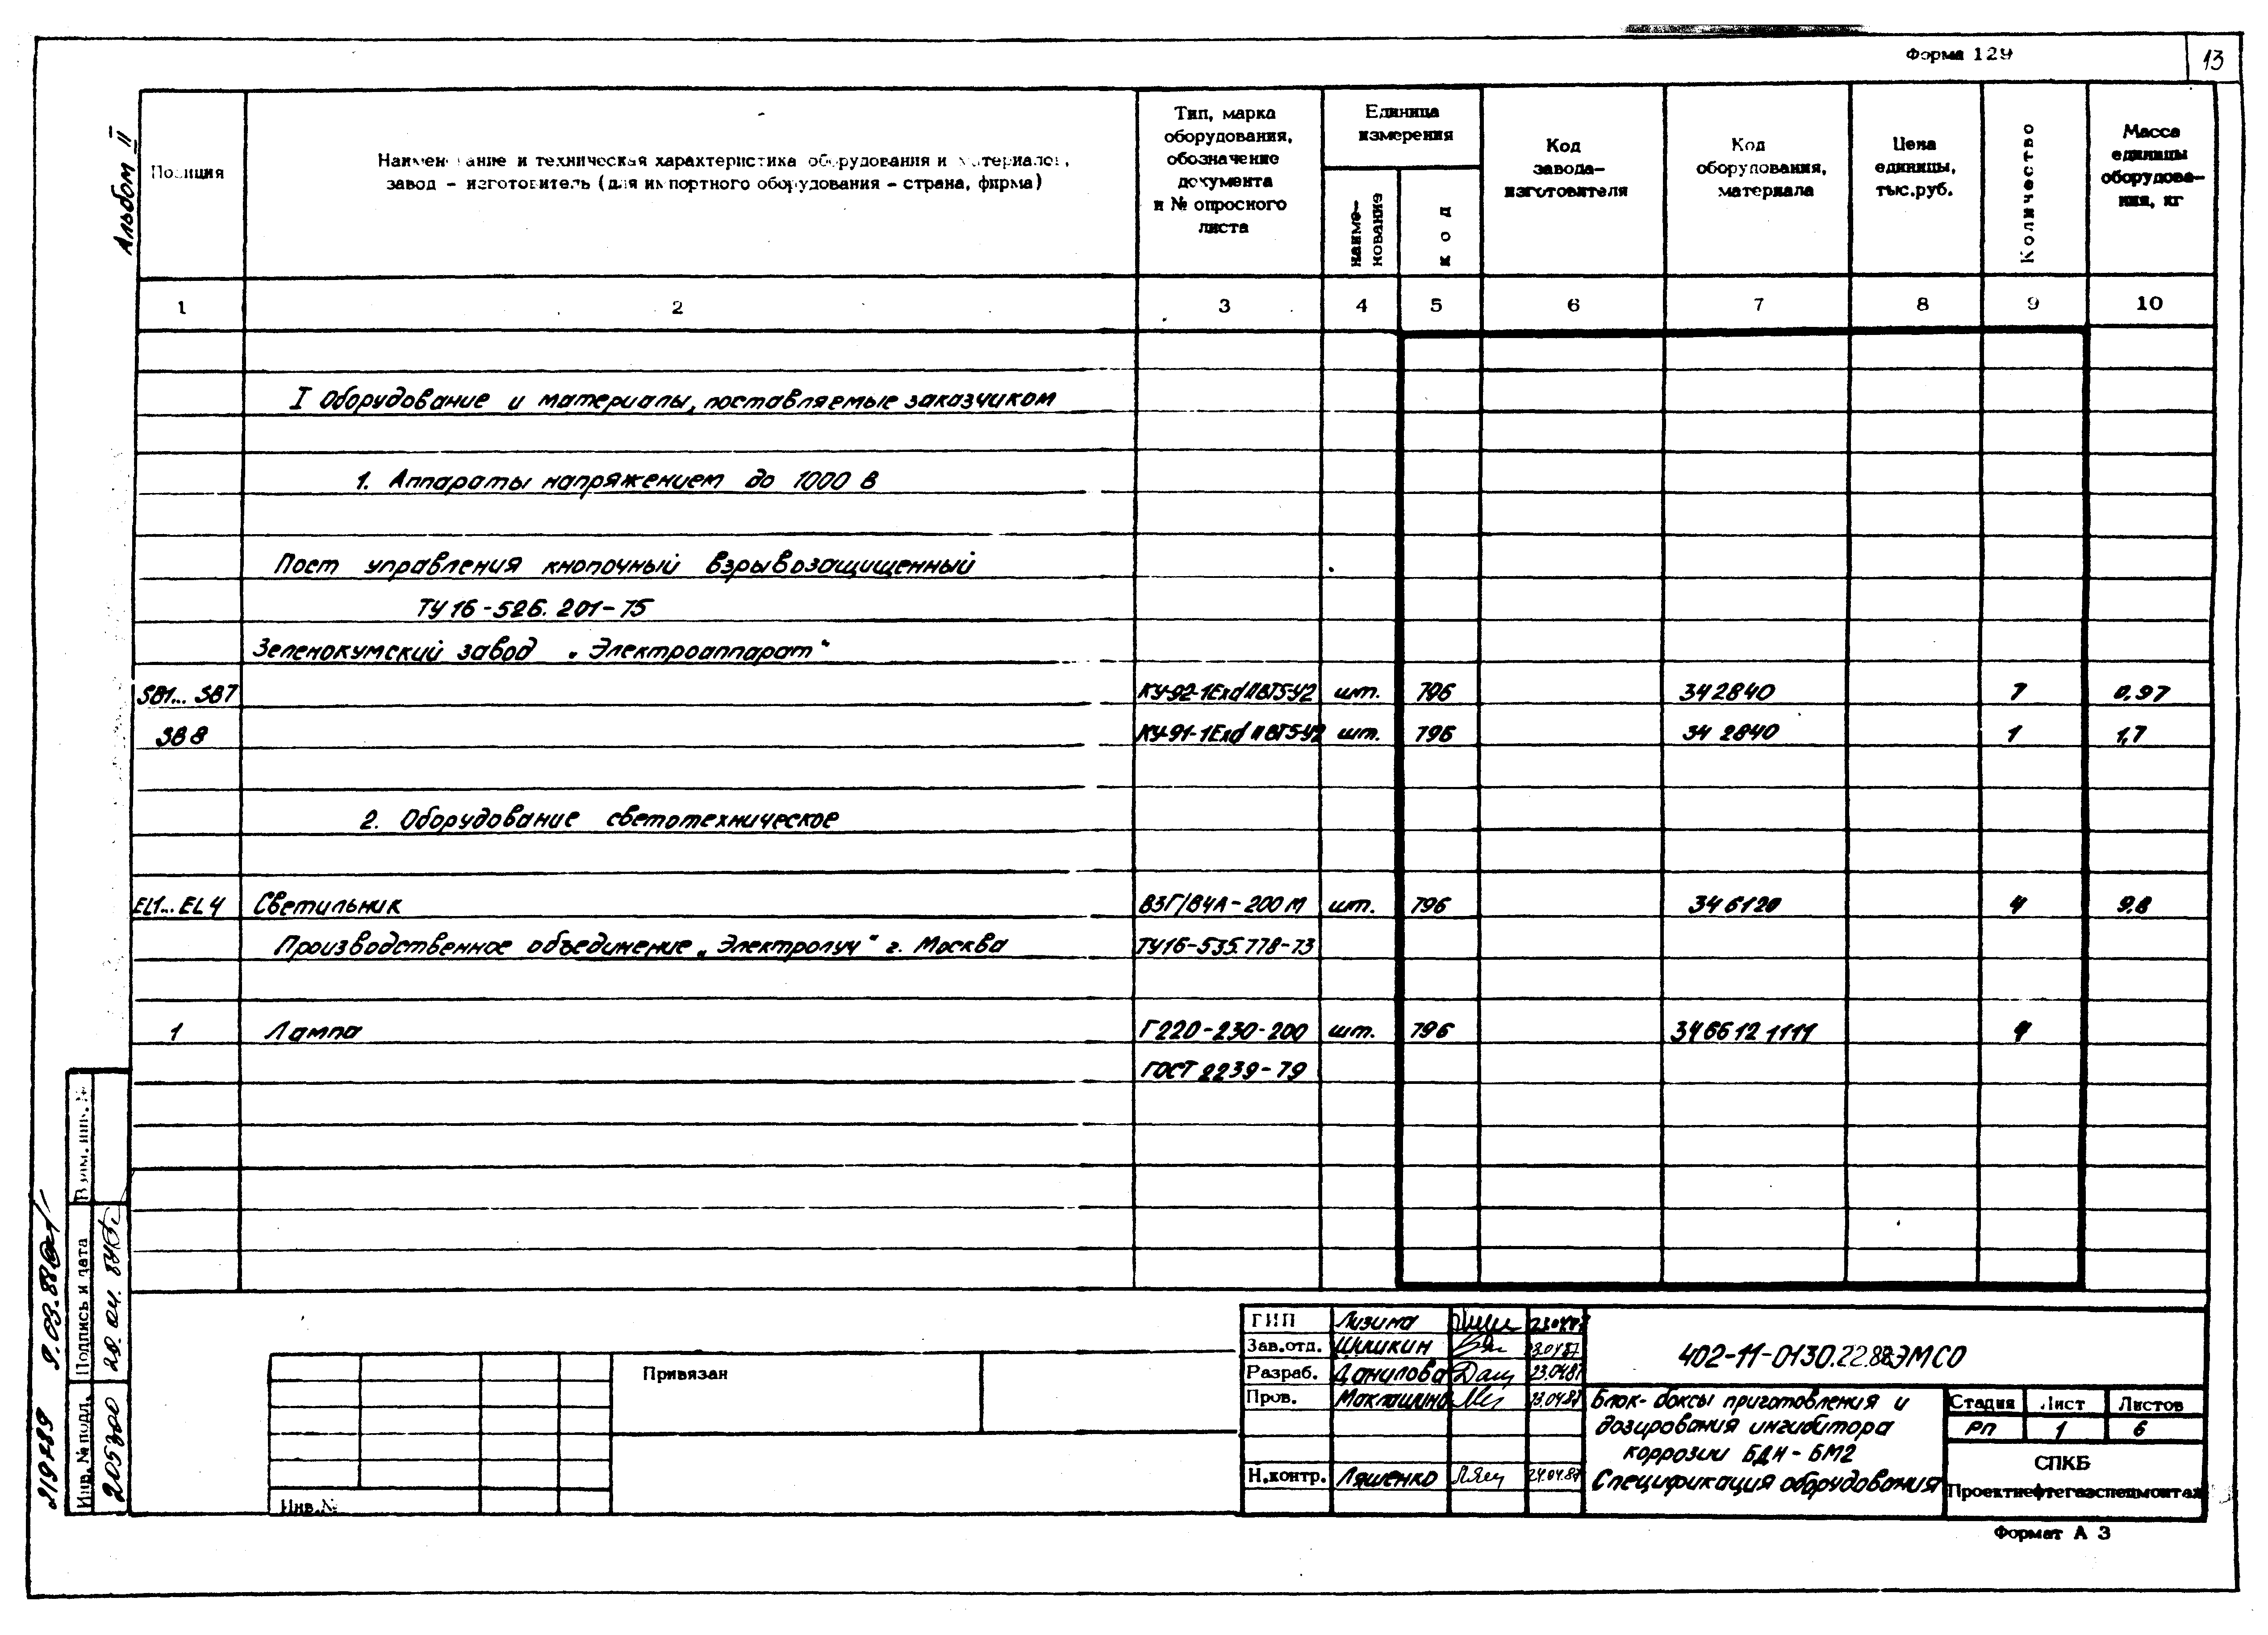 Форма 129
13
Альбом II
Позиция
Наименование и техническая характеристика оборудования и материалов,
завод - изготовитель (для импортного оборудования - страна, фирма)
Тип, марка
оборудования,
обозначение
документа
и № опросного
листа
Единица
измерения
наиме-
нование
код
Код
завода-
изготовителя
Код
оборудования,
материала
Цена
единицы,
тыс.руб.
Количество
Масса
единицы
оборудова-
ния, кг
1 2 3 4 5 6 7 8 9 10
I Оборудование и материалы, поставляемые заказчиком
1. Аппараты напряжением до 1000 В
Пост управления кнопочный взрывозащищенный
ТУ 16-526.201-75
Зеленокумский завод „Электроаппарат"
SB1... SB7 КУ-92-1ExdIIВТ5-У2 шт. 796 342840 7 0,97
SB8 КУ-91-1ExdIIВТ5-У2 шт. 796 34 2840 1 1,7
2. Оборудование светотехническое
EL1... EL4 Светильник ВЗГ/В4А-200М шт. 796 346120 4 9,8
Производственное объединение „Электролуч" г. Москва ТУ16-535.778-73
1 Лампа Г220-230-200 шт. 796 346612 1111 4
ГОСТ 2239-79
Взам. инв. №
Подпись и дата
Инв. № подл.
205300
219789 9.03.88
Привязан
Инв.№
ГИП Лизина 23.04.87
Зав.отд. Шишкин 23.04.87
Разраб. Данилова 23.04.87
Пров. Маклашина 23.04.87
Н.контр. Ляшенко 24.04.87
402-11-0130.22.88ЭМСО
Блок-боксы приготовления и
дозирования ингибитора
коррозии БДИ-БМ2
Спецификация оборудования
Стадия Лист Листов
РП 1 6
СПКБ
Проектнефтегазспецмонтаж
Формат А 3